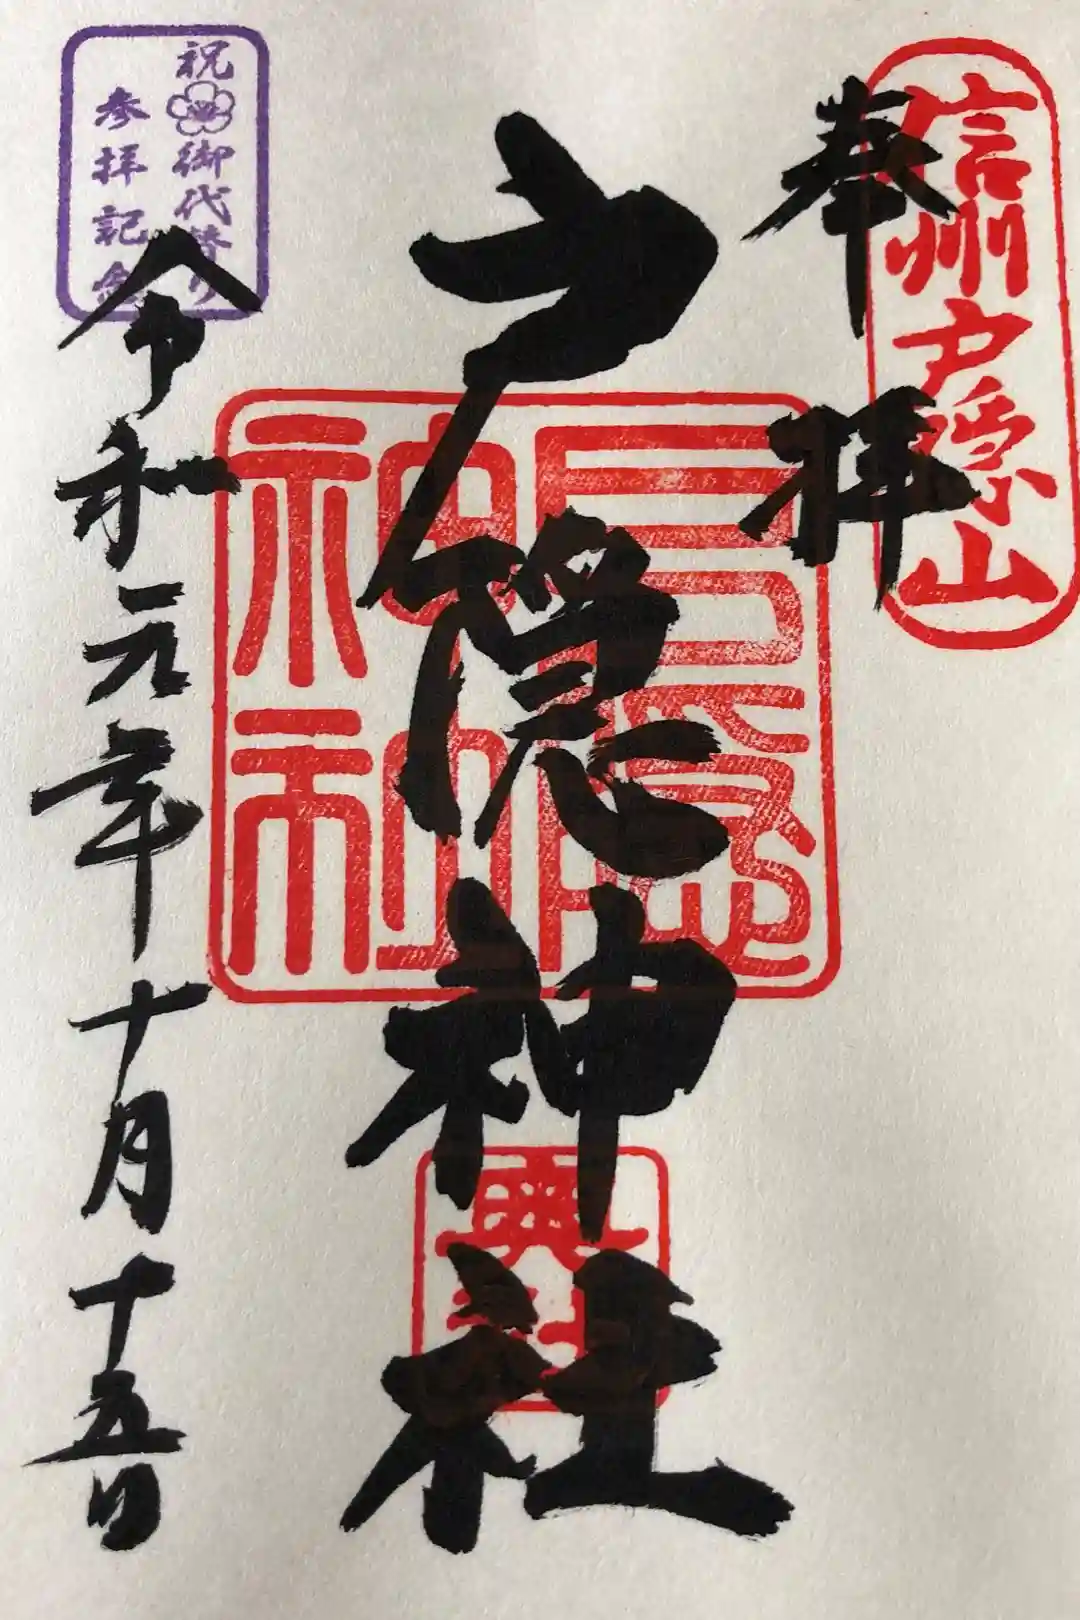 信州戸隠山
奉拝
戸隠神社
戸隠神社
奥社
祝御代替り
参拝記念
令和元年十月十五日